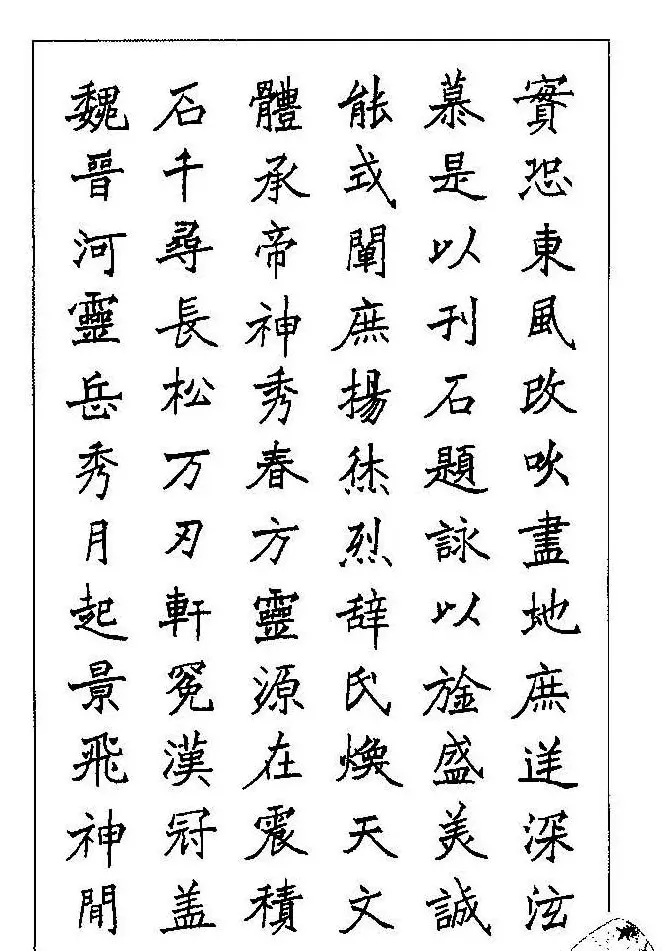 實恐東風改吹盡地庶深泫
慕是以刊石題詠以旌盛美誠
能式闡庶揚烋烈辞氏煥天文
體承帝神秀春方靈源在震積
石千尋長松万刃軒冕漢冠盖
魏晉河靈岳秀月起景飛神閒